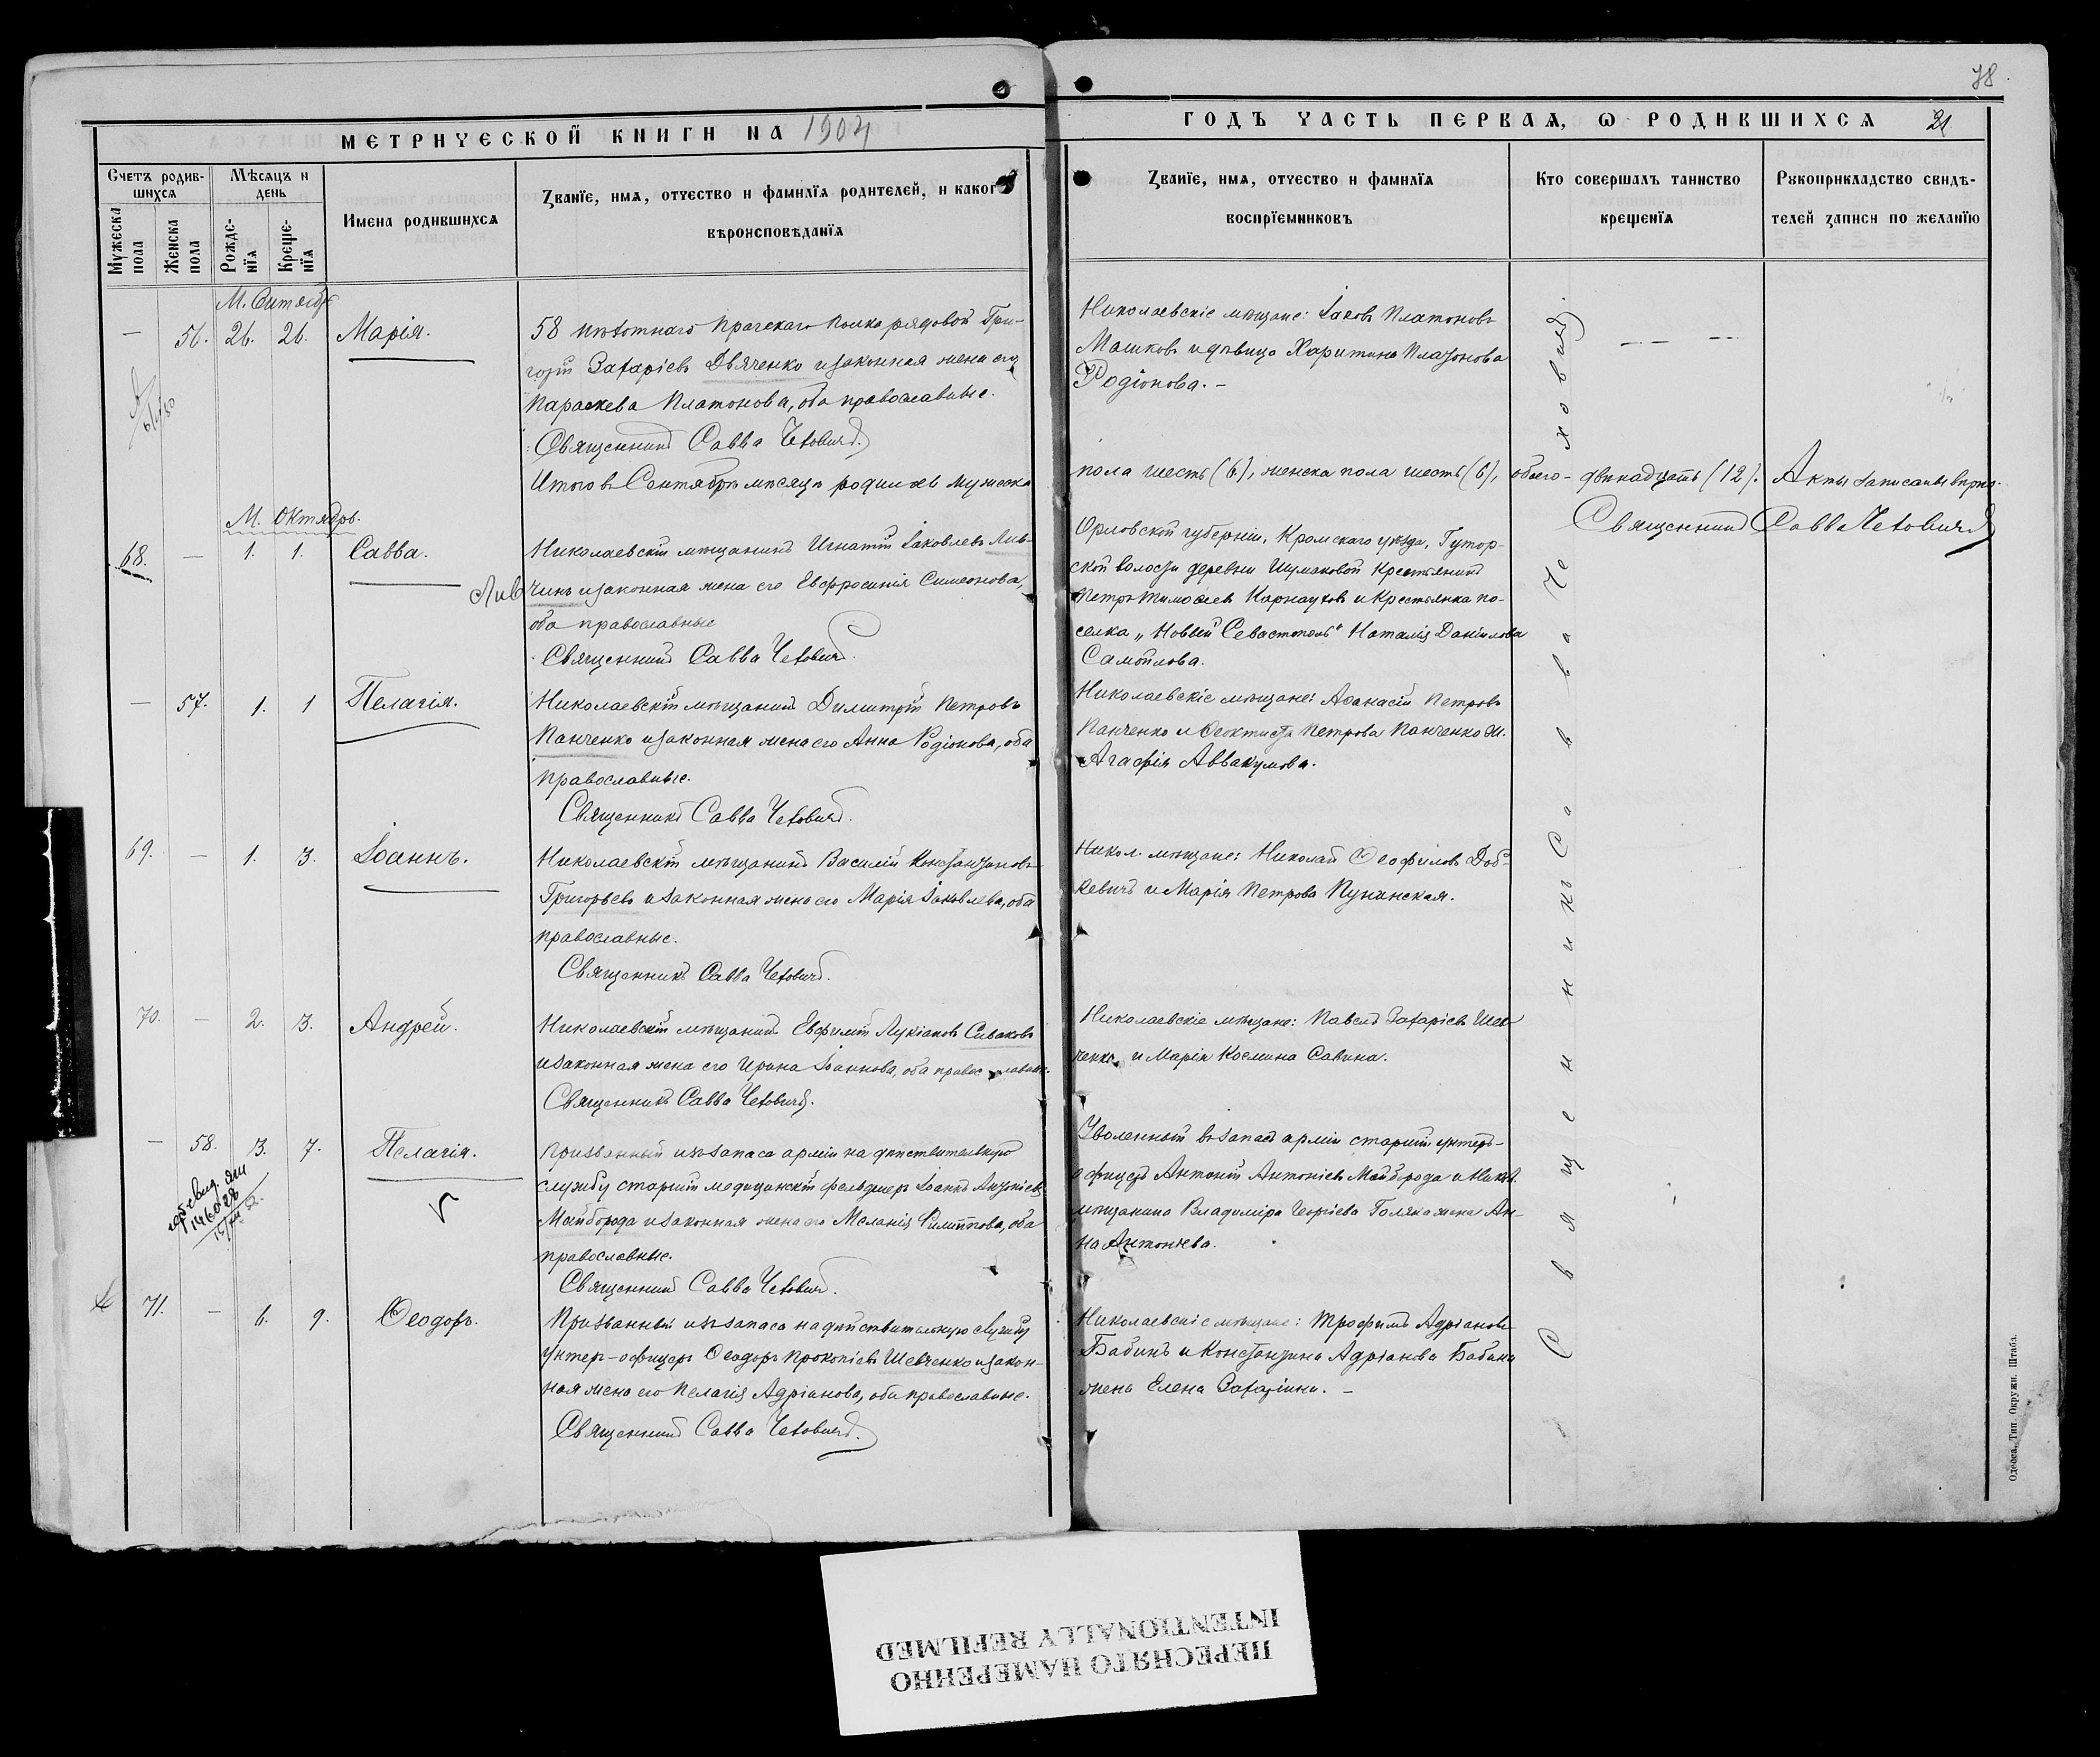 78
МЕТРИЧЕСКОЙ КНИГИ НА 1904
ГОДЪ ЧАСТЬ ПЕРВАЯ, Ѡ РОДИВШИХСЯ 21
Счетъ родив-
шихся
Мѣсяцъ и
день
Мужеска
пола
Женска
пола
Рожде-
нїя
Креще-
нїя
Имена родившихся
Званїе, имя, отчество и фамилїя родителей, и какого
вѣроисповѣданїя
Званїе, имя, отчество и фамилїя
воспрїемниковъ
Кто совершалъ таинство
крещенїя
Рукоприкладство свидѣ-
телей записи по желанїю
М. Сентябрь
— 56. 26. 26. Марія.
58 пѣхотнаго Прагскаго полка рядовой Гри-
горій Захаріевъ Дьяченко и законная жена его
Параскева Платонова, оба православные.
Священникъ Савва Чеховичъ.
Николаевскіе мѣщане: Іаковъ Платоновъ
Машковъ и дѣвица Харитина Платонова
Родіонова. –
Итого въ Сентябрѣ мѣсяцѣ родилось мужеска
пола шесть (6), женска пола шесть (6), обоего – двѣнадцать (12). Акты записаны вѣрно.
Священникъ Савва Чеховичъ
М. Октябрь.
68. — 1. 1. Савва.
Николаевскій мѣщанинъ Игнатій Іаковлевъ Лив-
Лив чинъ и законная жена его Евфросинія Симеонова,
оба православные
Священникъ Савва Чеховичъ.
Орловской губерніи, Кромскаго уѣзда, Гутор-
ской волости деревни Шумаковой крестьянинъ
Петръ Тимоѳеевъ Карнауховъ и крестьянка по-
селка „Новый Севастополь" Наталія Даніилова
Самойлова.
— 57. 1. 1 Пелагія.
Николаевскій мѣщанинъ Димитрій Петровъ
Панченко и законная жена его Анна Родіонова, оба
православные.
Священникъ Савва Чеховичъ.
Николаевскіе мѣщане: Аѳанасій Петровъ
Панченко и Ѳеоктиста Петрова Панченко ж.
Агафія Аввакумова.
69. — 1. 3. Іоаннъ.
Николаевскій мѣщанинъ Василій Константиновъ
Григорьевъ и законная жена его Марія Іаковлева, оба
православные.
Священникъ Савва Чеховичъ.
Никол. мѣщане: Николай Ѳеофиловъ Доб-
кевичъ и Марія Петрова Пучинская.
70. — 2. 3. Андрей.
Николаевскій мѣщанинъ Евфимій Лукіановъ Сиваковъ
и законная жена его Ирина Іоаннова, оба православные.
Священникъ Савва Чеховичъ.
Николаевскіе мѣщане: Павелъ Захаріевъ Шев-
ченко и Марія Космина Савина.
— 58. 3. 7. Пелагія.
Призванный изъ запаса арміи на дѣйствительную
службу старшій медицинскій фельдшеръ Іоаннъ Антоніевъ
Майборода и законная жена его Меланія Филиппова, оба
православные.
Священникъ Савва Чеховичъ.
Уволенный въ запасъ арміи старшій унтеръ-
офицеръ Антоній Антоніевъ Майборода и Никол.
мѣщанина Владиміра Георгіева Голяка жена Ан-
на Антоніева.
71. — 6. 9. Ѳеодоръ.
Призванный изъ запаса на дѣйствительную службу
унтеръ-офицеръ Ѳеодоръ Прокопіевъ Шевченко и закон-
ная жена его Пелагія Адріанова, оба православные.
Священникъ Савва Чеховичъ.
Николаевскіе мѣщане: Трофимъ Адріановъ
Бабинъ и Константина Адріанова Бабина
жена Елена Захаріина. –
Священникъ Савва Чеховичъ.
Одесса. Тип. Окружн. Штаба.
ПЕРЕСНЯТО НАМЕРЕННО
INTENTIONALLY REFILMED